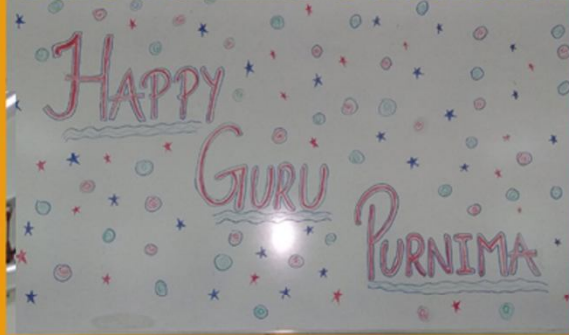 HAPPY
GURU
PURNIMA